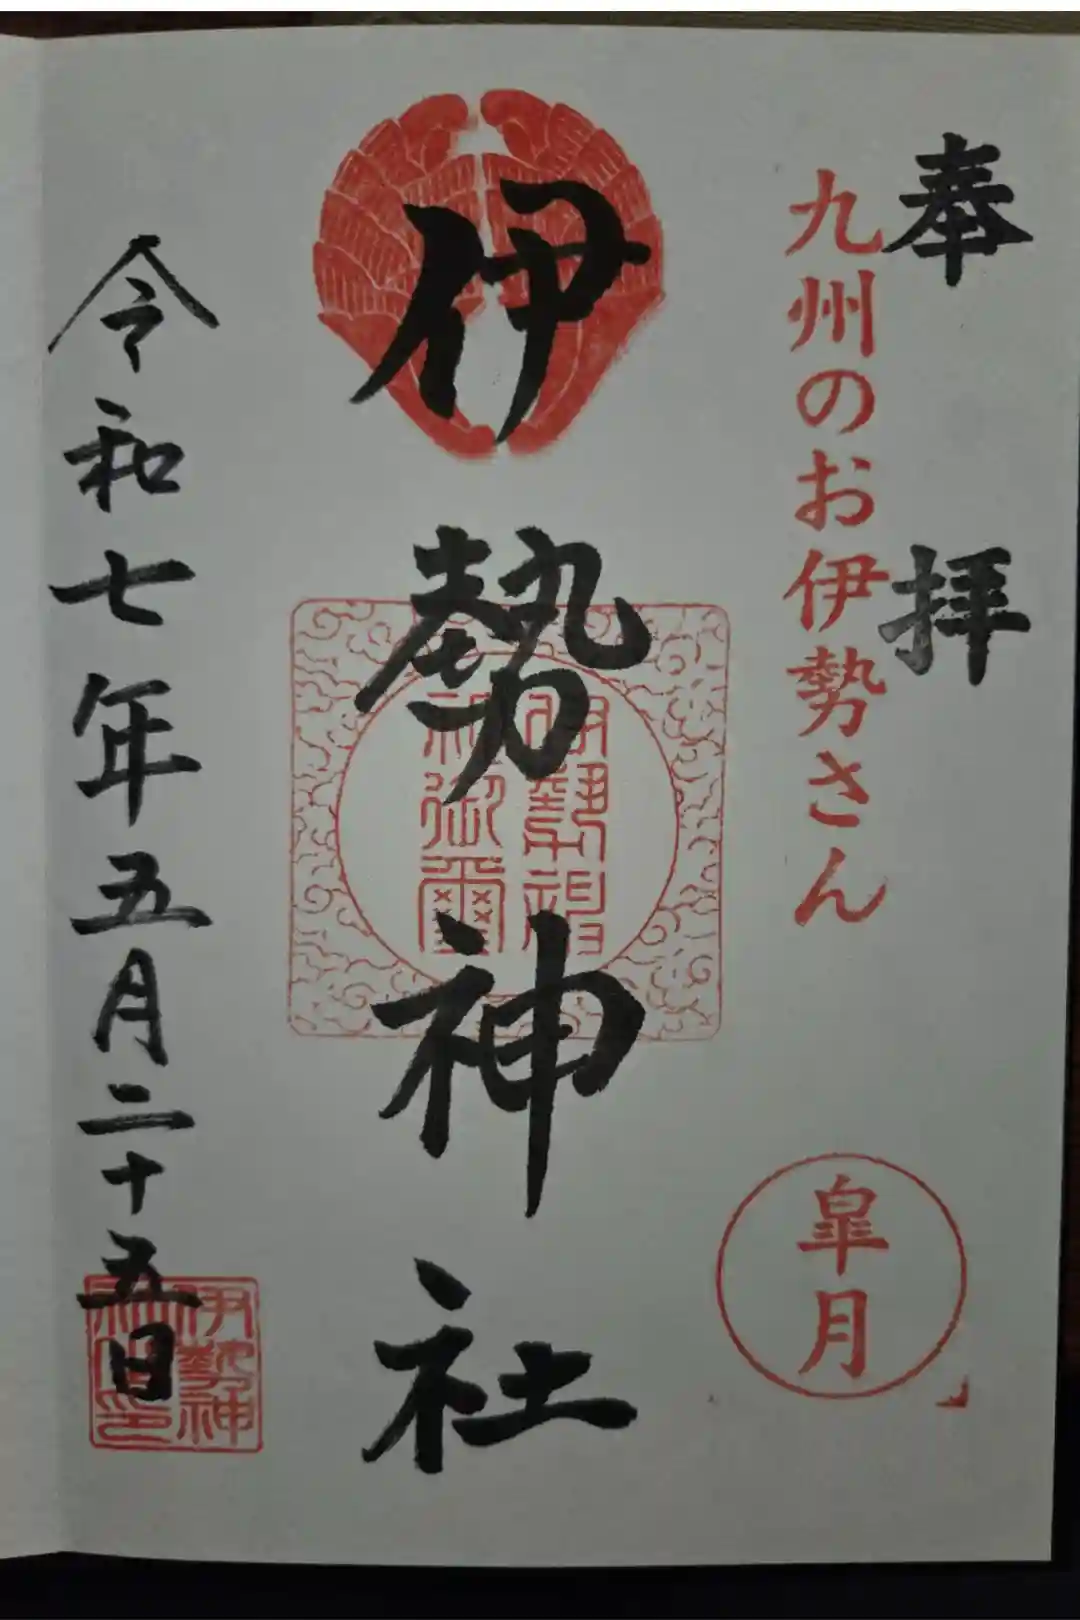 奉拝
九州のお伊勢さん
皐月
伊勢神社
伊勢神社
御璽
令和七年五月二十五日
伊勢神
社之印